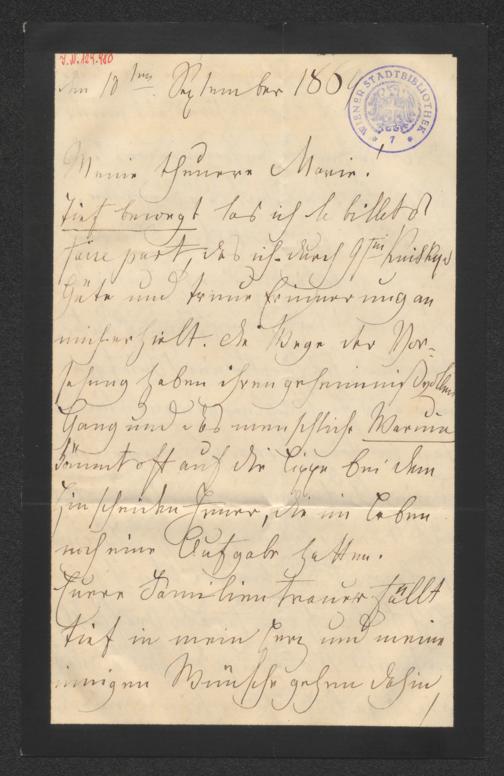 J.N. 124.980
Am 10ten September 186
WIENER STADTBIBLIOTHEK
* 7 *
Meine theuere Marie!
Tief bewegt las ich le billet d
faire part, das ich durch Gfin Kinskys
Güte und treue Erinnerung an
mich erhielt. Die Wege der Vor-
sehung haben ihren geheimnißvollen
Gang und das menschliche Warum
kömmt oft auf die Lippe bei dem
Hinscheiden Jener, die im Leben
noch eine Aufgabe hatten.
Euere Familientrauer fällt
tief in mein Herz und meine
innigen Wünsche gehen dahin,